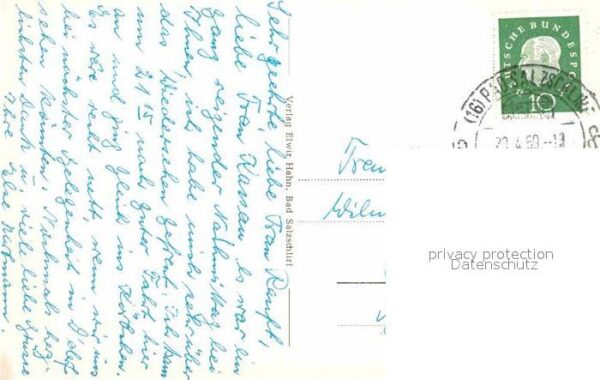 Sehr geehrte liebe Frau Rauft,
liebe Frau Kassau, es war ein
ganz reizender Nachmittag bei
Ihnen, ich habe mich sehr über
das Wiedersehen gefreut. Ich kam
um 21 15 nach guter Fahrt hier
an und ging gleich ins
Es wäre sehr nett wenn wir uns
bei nächster Gelegenheit in
sehen könnten. Nochmals herz-
lichsten Dank u. viele liebe Grüsse
Ihre Else Hartmann.
Verlag Elwir. Hahn, Bad Salzschlirf
DEUTSCHE BUNDESP
10
(16) BAD SALZSCHLIRF
4.60.-18
Frau
privacy protection
Datenschutz